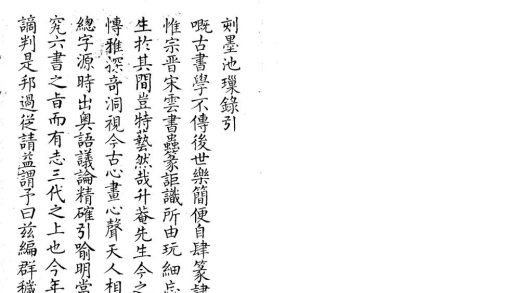 刻墨池璅錄引
嘅古書學不傳後世樂簡便自肆篆隷
惟宗晋宋雲書蟲篆詎識所由玩細忘
生扵其間豈特藝然哉升菴先生今之
愽雅深奇洞視今古心畫心聲天人相
總字源時出奥語議論精確引喻明當
究六書之㫖而有志三代之上也今年
謫判是邦過從請益謂予曰兹編群穢